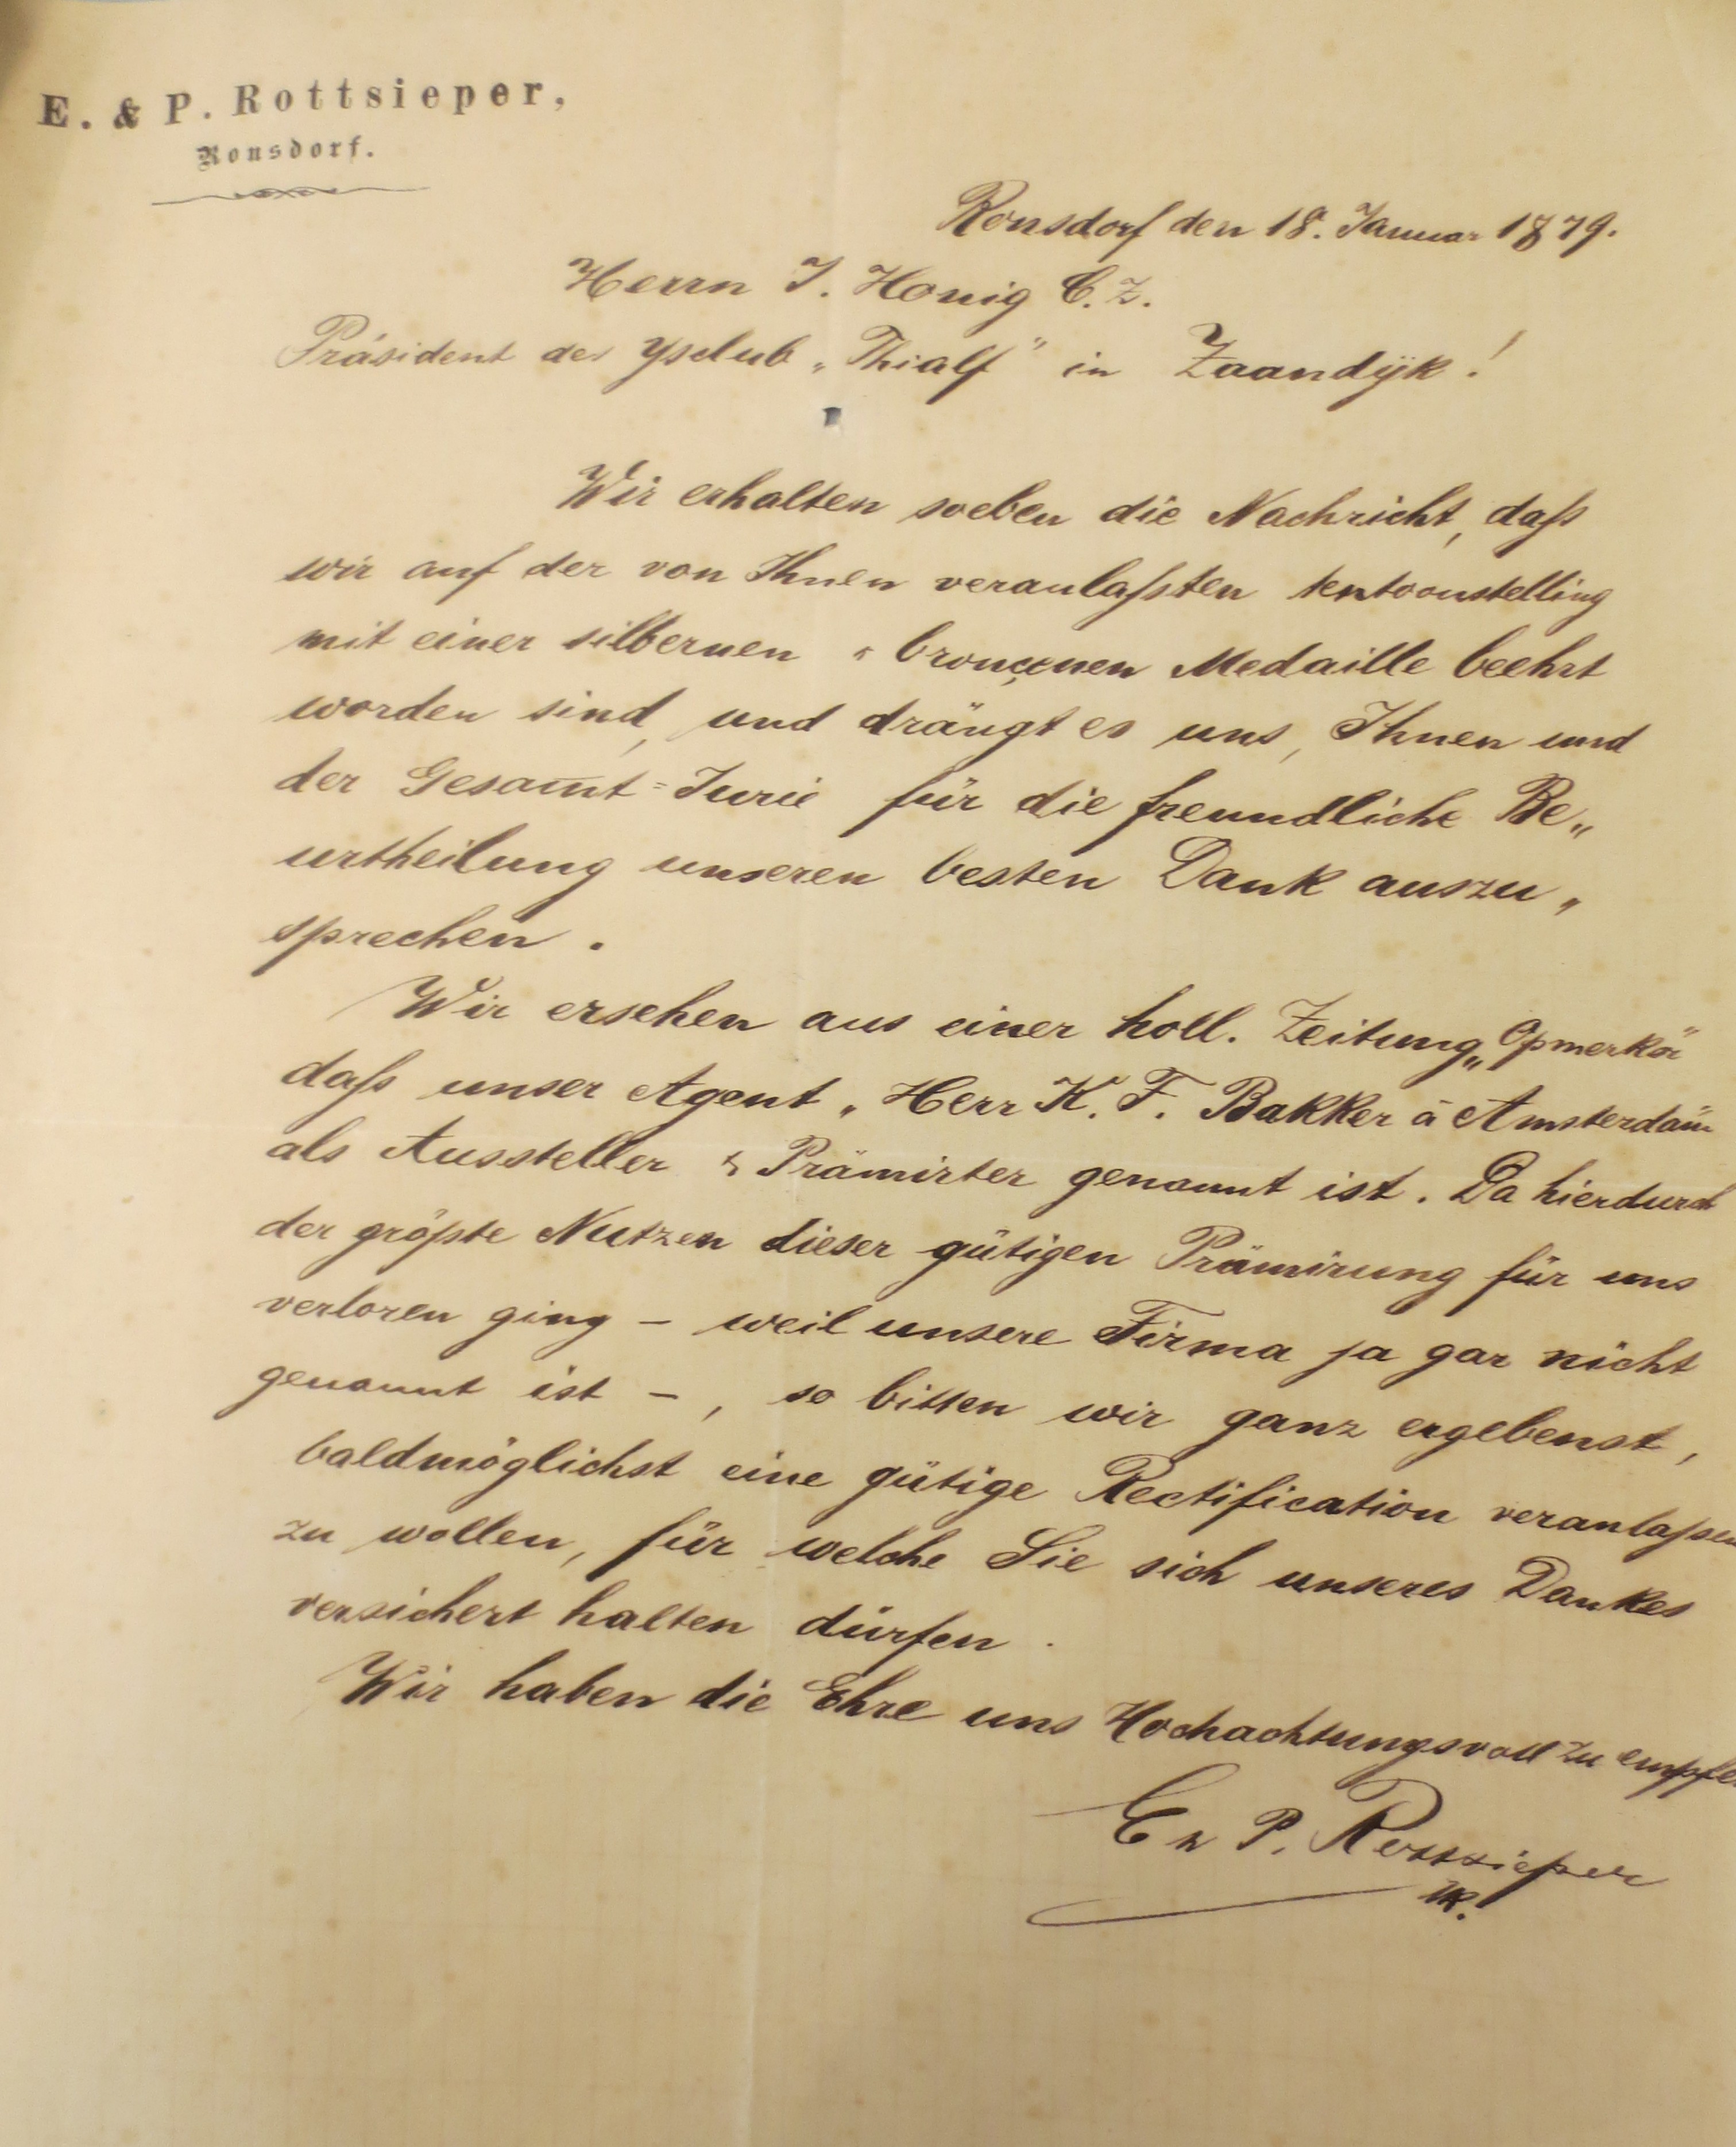 E. & P. Rottsieper,
Ronsdorf.
Ronsdorf den 18. Januar 1879.
Herrn J. Honig C. Z.
Präsident des Ysclub „Thialf" in Zaandijk!
Wir erhalten soeben die Nachricht, daſs
wir auf der von Ihnen veranlaſsten tentoonstelling
mit einer silbernen & bronçenen Medaille beehrt
worden sind, und drängt es uns, Ihnen und
der Gesam̄t=Jurie für die freundliche Be„
urtheilung unseren besten Dank auszu„
sprechen.
Wir ersehen aus einer holl. Zeitung „
daſs unser Agent „Herr K. F. Bakker á Amsterdam
als Aussteller & Prämirter genannt ist. Da hierdurch
der gröſste Nutzen dieser gütigen Prämirung für uns
verloren ging – weil unsere Firma ja gar nicht
genannt ist –, so bitten wir ganz ergebenst,
baldmöglichst eine gütige Rectification veranlaſsen
zu wollen, für welche Sie sich unseres Dankes
versichert halten dürfen.
Wir haben die Ehre uns Hochachtungsvoll zu empfe
E & P. Rottsieper